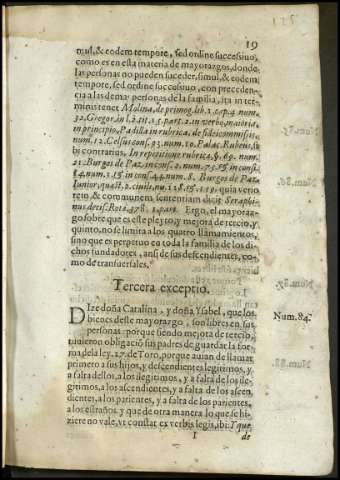 19
mul, & eodem tempore, sed ordine successiuo,
como es en esta materia de mayorazgos, donde
las personas no pueden suceder, simul, & eodem
tempore, sed ordine succesiuo, con precedencia
a las demas personas de la familia, ita in terminis
tenet Molina, de primog. lib. 1. cap. 4. num.
32. Gregor. in l. 2. tit. 15. part. 2. in verbo,
in principio, Padilla in rubrica, de fideicommissis,
num. 12. Celsus cons. 93. num. 10. Palac. Rubeus, sibi
contrarius, In repetitione rubricæ, §. 69. num.
21. Burgos de Paz, in cons. 2. num. 75. & in cons.
14. num. 15. & in cons. 44. num. 8. Burgos de Paz
Iunior, quæst. 2. ciuile, nu. 118. & 119. quia veriorem
& communem sententiam dicit Seraphinus
decis. Rotæ 478. 1. part. Ergo, el mayorazgo
sobre que es este pleyto, y mejora de tercio, y
quinto, no se limita a los quatro llamamientos,
sino que es perpetuo en toda la familia de los dichos
fundadores, ansi de sus descendientes, como
de transuersales.
Tercera exceptio.
DIze doña Catalina, y doña Ysabel, que los
bienes deste mayorazgo, son libres en sus
personas: porque siendo mejora de tercio,
tuuieron obligació sus padres de guardar la forma
de la ley. 27. de Toro, porque auian de llamar
primero a sus hijos, y descendientes legitimos, y
a falta dellos, a los ilegitimos, y a falta de los ilegitimos,
a los ascendientes, y a falta de los ascendientes,
a los parientes, y a falta de los parientes,
a los estraños, y que de otra manera lo que se hiziere
no vale, vt constat ex verbis legis, ibi: Y que
Num. 84.
I
de